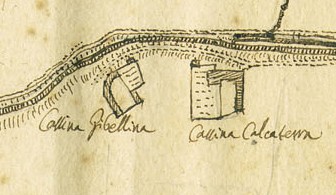 Cassina Gibellina
Cassina Calcaterra